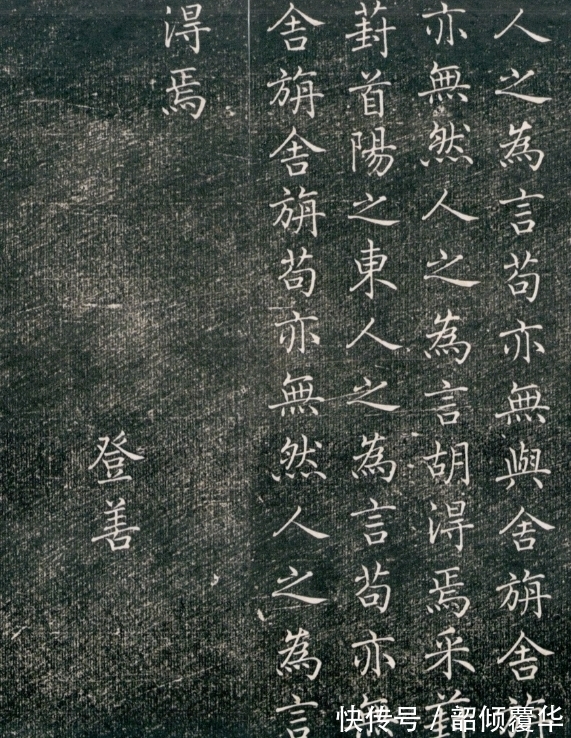 人之為言苟亦無與舍旃舍旃
亦無然人之為言胡得焉采葑
葑首陽之東人之為言苟亦無
舍旃舍旃苟亦無然人之為言
得焉
登善
快传号 / 韶倾覆华